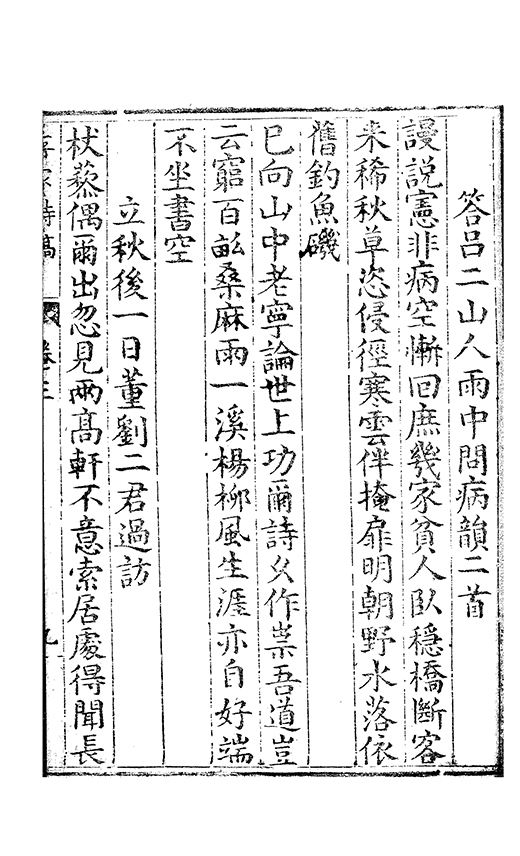 答吕二山人雨中問病韻二首
謾説憲非病空慚囘庶幾家貧人臥穩橋斷客
来稀秋草恣侵徑寒雲伴掩扉明朝野水落依
舊釣魚磯
已向山中老寧論世上功爾詩久作祟吾道豈
云窮百畝桑麻雨一溪楊柳風生涯亦自好端
不坐書空
立秋後一日董劉二君過訪
杖藜偶爾出忽見兩髙軒不意索居處得聞長
家詩髙
卷三
九